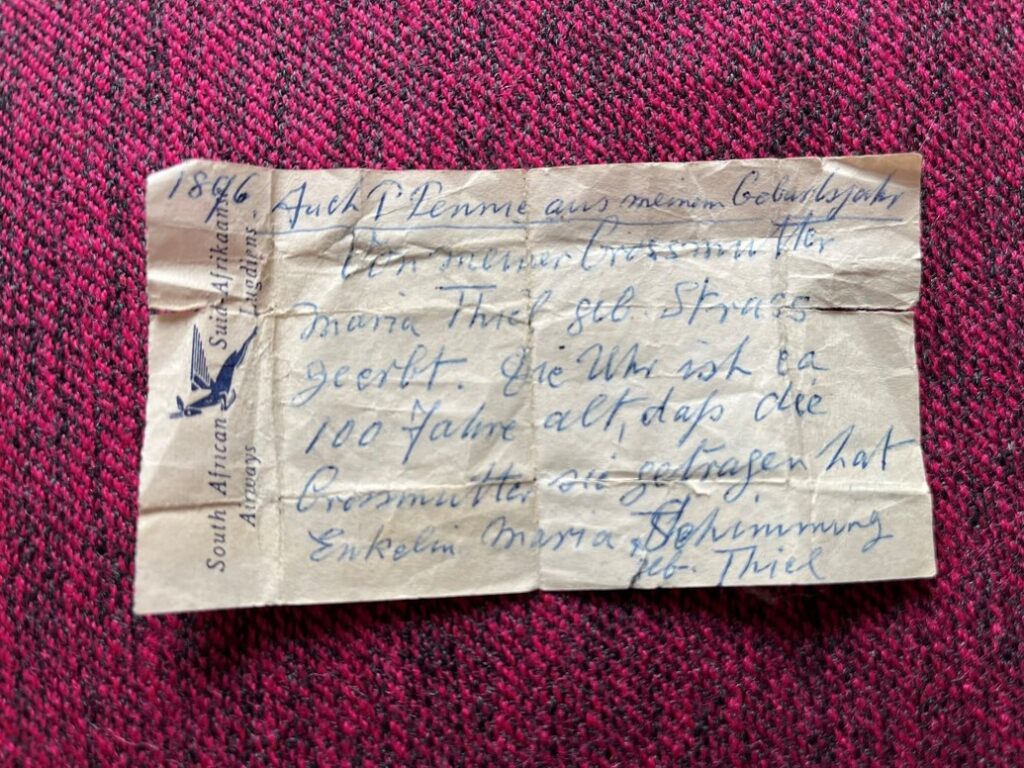 1896. Auch 1 Pennie aus meinem Geburtsjahr
Von meiner Grossmutter
Maria Thiel geb. Strass
geerbt. Die Uhr ist ca
100 Jahre alt, daß die
Grossmutter sie getragen hat
Enkelin Maria Schimming
geb. Thiel
South African Suid-Afrikaanse
Airways Lugdiens